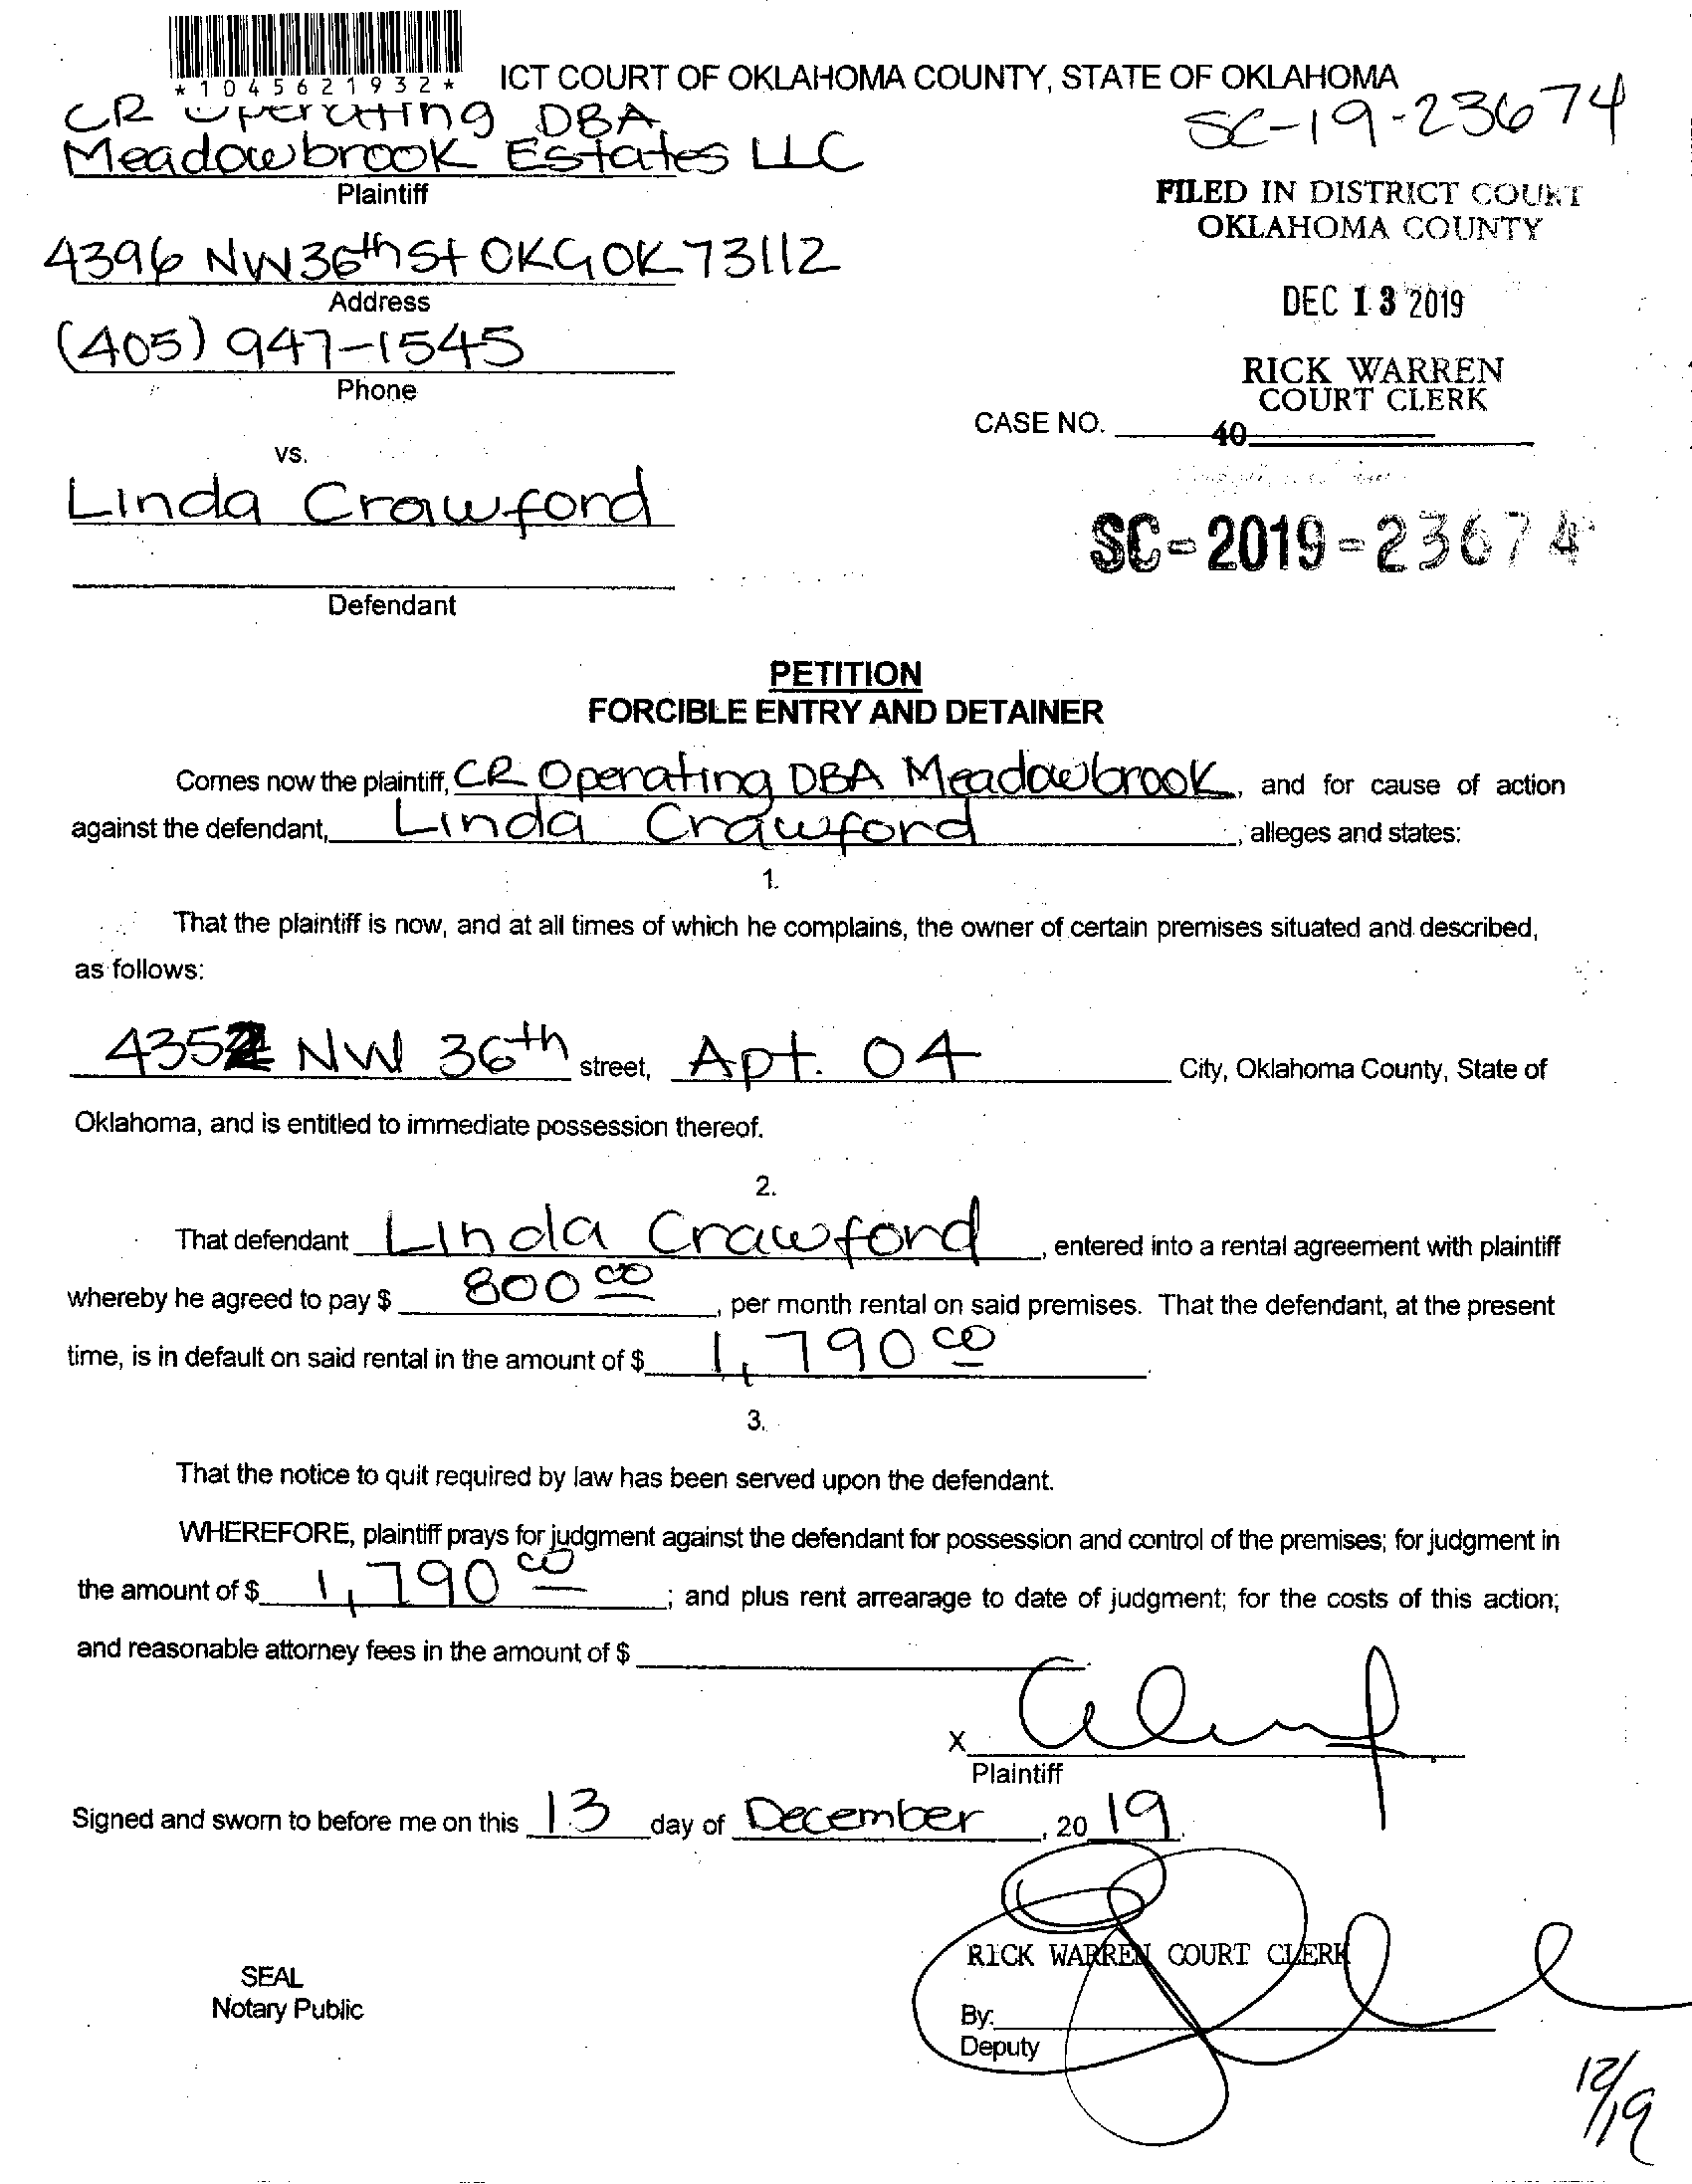 *1045621932*
ICT COURT OF OKLAHOMA COUNTY, STATE OF OKLAHOMA
CR Operating DBA
SC-19-23674
Meadowbrook Estates LLC
Plaintiff
FILED IN DISTRICT COURT
OKLAHOMA COUNTY
4396 NW 36th St OKC OK 73112
Address
DEC 13 2019
(405) 947-1545
Phone
RICK WARREN
COURT CLERK
CASE NO.
40
vs.
Linda Crawford
SC-2019-23674
Defendant
PETITION
FORCIBLE ENTRY AND DETAINER
Comes now the plaintiff, CR Operating DBA Meadowbrook, and for cause of action
against the defendant, Linda Crawford, alleges and states:
1.
That the plaintiff is now, and at all times of which he complains, the owner of certain premises situated and described,
as follows:
NW 36th street, Apt. 04 City, Oklahoma County, State of
Oklahoma, and is entitled to immediate possession thereof.
2.
That defendant Linda Crawford, entered into a rental agreement with plaintiff
whereby he agreed to pay $ 800 00, per month rental on said premises. That the defendant, at the present
time, is in default on said rental in the amount of $ 1,790 00.
3.
That the notice to quit required by law has been served upon the defendant.
WHEREFORE, plaintiff prays for judgment against the defendant for possession and control of the premises; for judgment in
the amount of $ 1,790 00; and plus rent arrearage to date of judgment; for the costs of this action;
and reasonable attorney fees in the amount of $
X
Plaintiff
Signed and sworn to before me on this 13 day of December, 20 19.
RICK WARREN COURT CLERK
SEAL
Notary Public
By:
Deputy
12/19